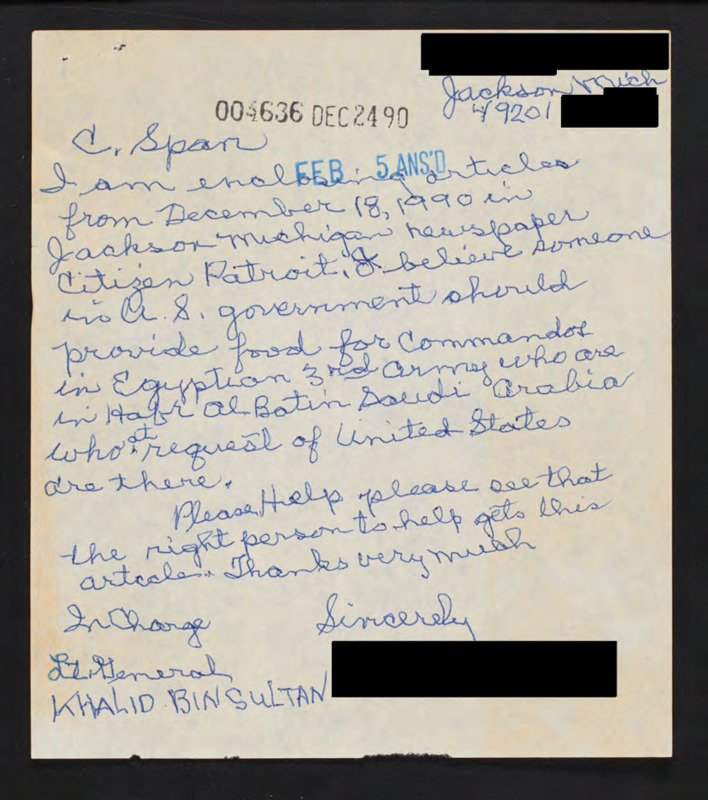 Jackson Mich
49201
004636 DEC 24 90
C. Span
FEB 5 ANS'D
I am enclosing articles
from December 18, 1990 in
Jackson Michigan newspaper
Citizen Patroit. I believe someone
in U.S. government should
provide food for Commandos
in Egyptian 3rd Army who are
in Hafr Al Batin Saudi Arabia
who at request of United States
are there.
Please Help please see that
the right person to help gets this
artcale. Thanks very much
In Charge
Sincerely
Lt. General
KHALID BIN SULTAN